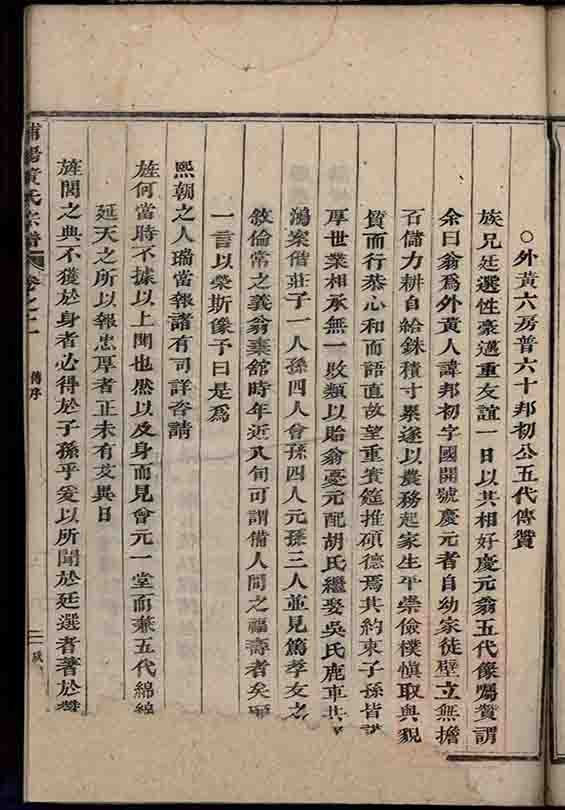 ○外黃六房普六十邦初公五代傳贊
族兄廷選性豪邁重友誼一日以其相好慶元翁五代像屬贊謂
余曰翁爲外黃人諱邦初字國開號慶元者自幼家徒壁立無擔
石儲力耕自給銖積寸累遂以農務起家生平崇儉樸愼取與貌
質而行恭心和而語直故望重賓筵推碩德焉其約束子孫皆
厚世業相承無一敗類以貽翁憂元配胡氏繼娶吳氏鹿車共
鴻案偕莊子一人孫四人曾孫四人元孫三人並見篤孝友之
敘倫常之義翁棄舘時年近八旬可謂備人間之福壽者矣
一言以榮斯像予曰是爲
熙朝之人瑞當報諸有司詳咨請
旌何當時不據以上聞也然以及身而見曾元一堂而兼五代綿綿
延天之所以報忠厚者正未有艾異日
旌閭之典不獲於身者必得於子孫乎爰以所聞於廷選者著於
浦陽黃氏宗譜 卷之十二 傳序